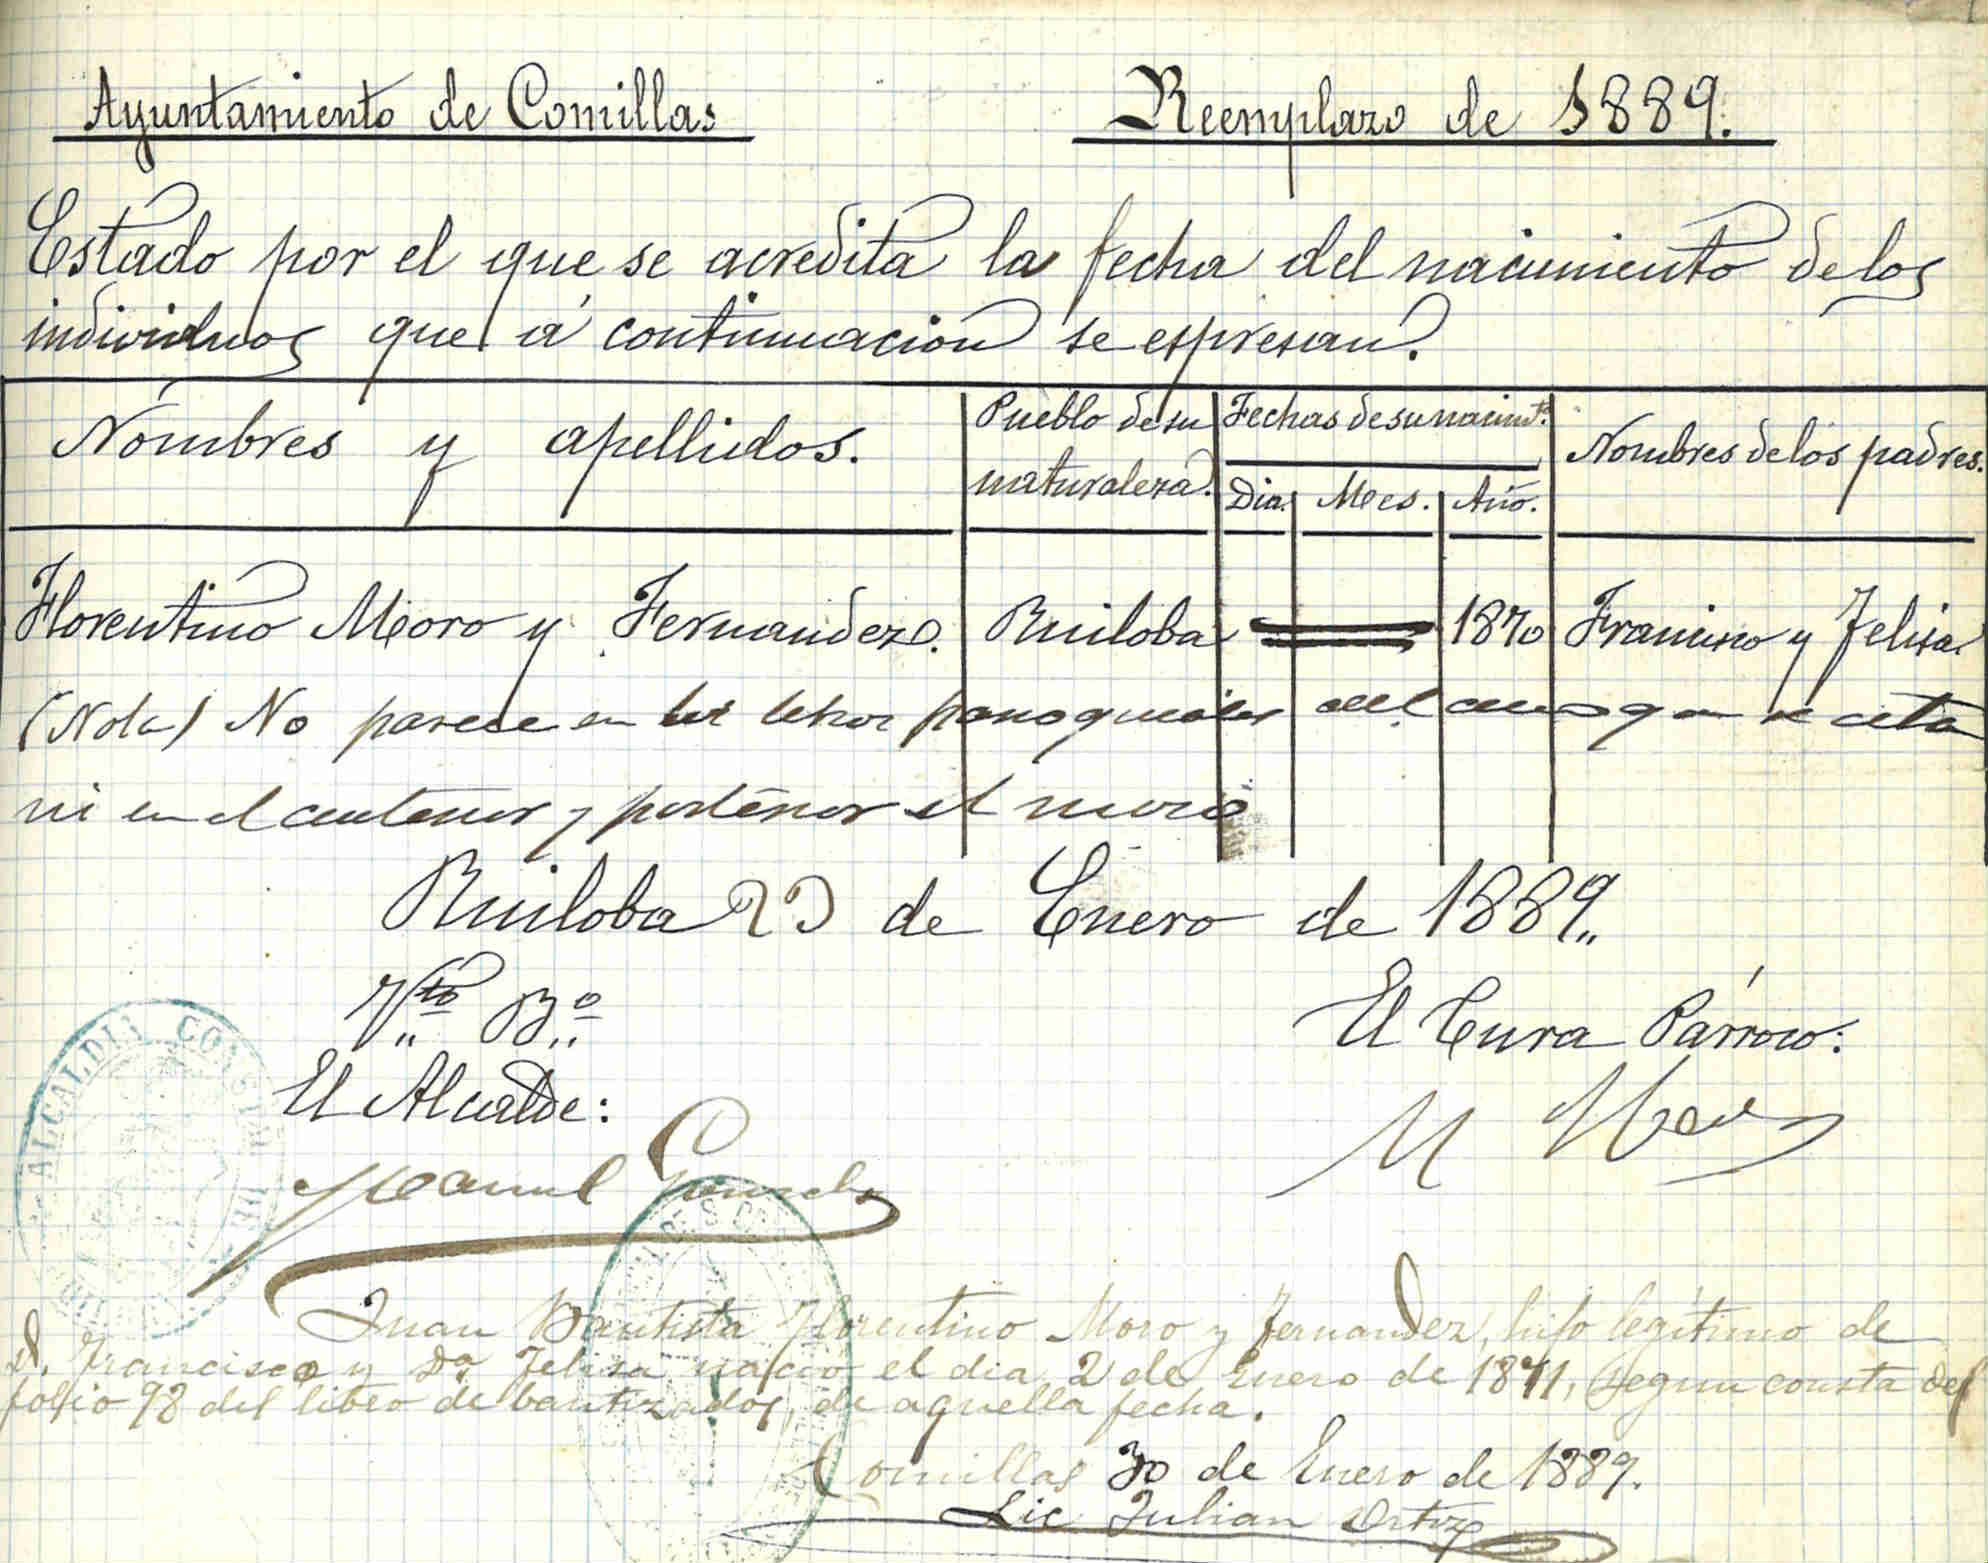 Ayuntamiento de Comillas
Reemplazo de 1889.
Estado por el que se acredita la fecha del nacimiento de los
individuos que á continuacion se espresan.
Nombres y apellidos.
Pueblo de su
naturaleza.
Fechas de su nacimto.
Dia. Mes. Año.
Nombres de los padres.
Florentino Moro y Fernandez. Ruiloba 1870 Francisco y Felisa
(Nota) No parece en los libros parroquiales del año que se cita
ni en el anterior y posterior el mozo
Ruiloba 23 de Enero de 1889.
Vto Bo
El Cura Párroco:
El Alcalde:
M
Manuel
ALCALDIA CONSTIT DE
Juan Bautista Florentino Moro y Fernandez, hijo legítimo de
D. Francisco y Da Felisa nació el dia 2 de Enero de 1871, segun consta del
folio 98 del libro de bautizados, de aquella fecha.
Comillas 30 de Enero de 1889.
Lic Julian Ortiz